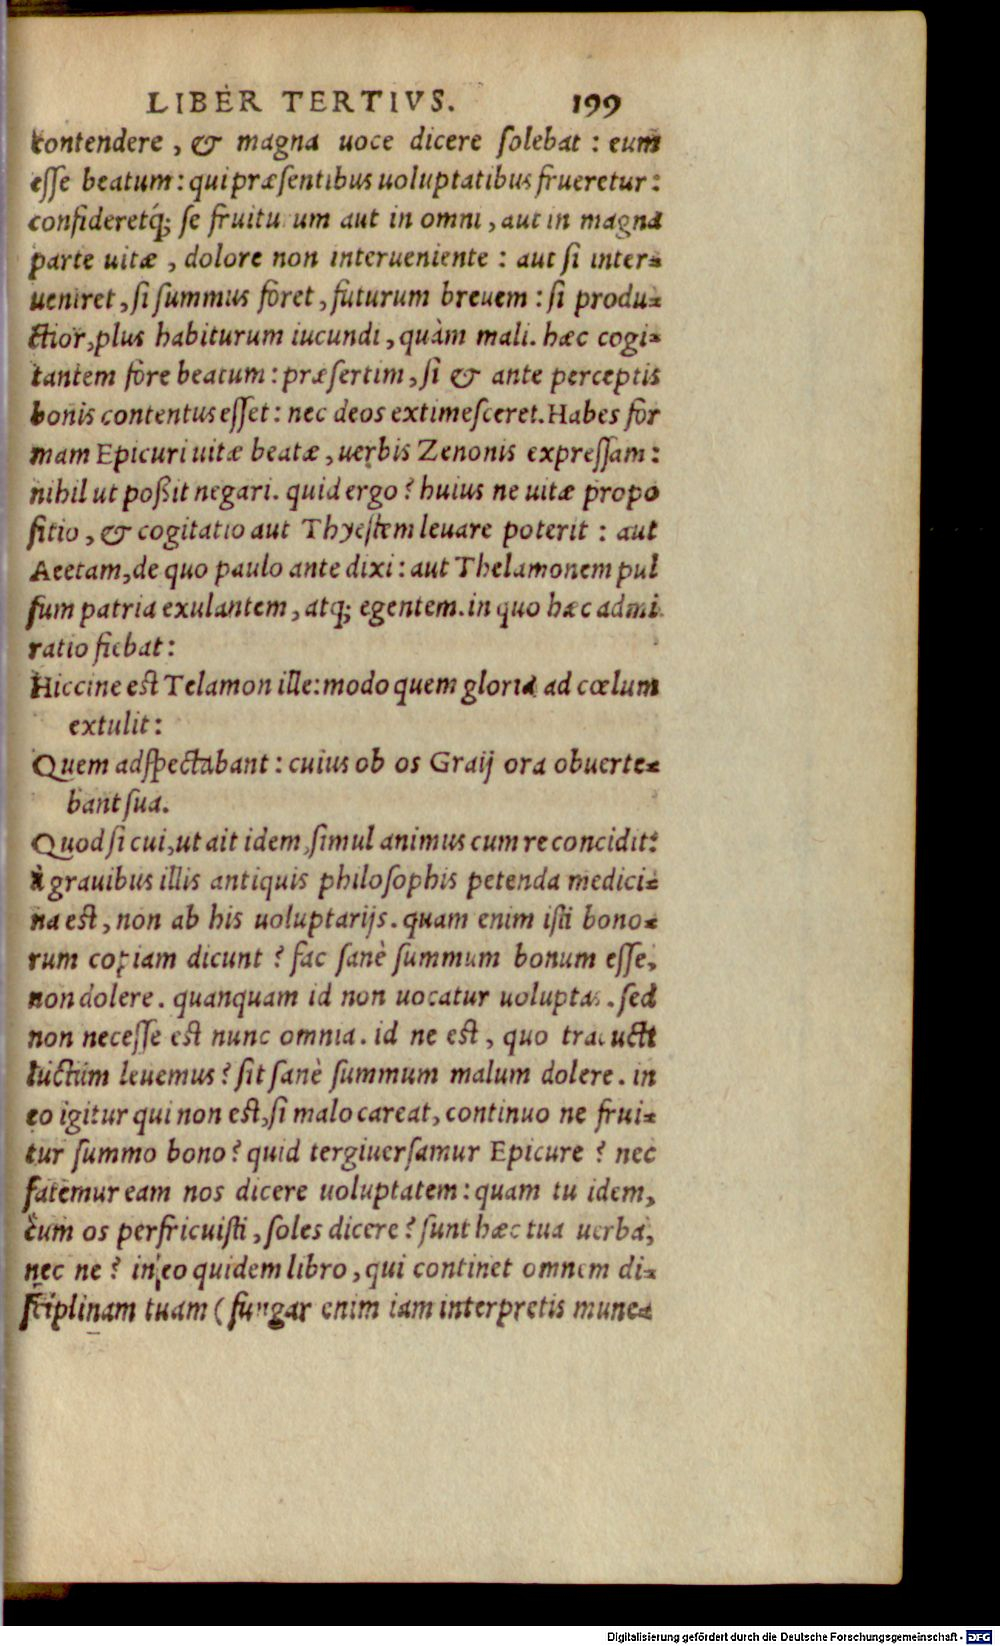 LIBER TERTIVS. 199
contendere, & magna uoce dicere solebat: eum
esse beatum: qui præsentibus uoluptatibus frueretur:
confideretq́; se fruiturum aut in omni, aut in magna
parte uitæ, dolore non interueniente: aut si inter-
ueniret, si summus foret, futurum breuem: si produ-
ctior, plus habiturum iucundi, quàm mali. hæc cogi-
tantem fore beatum: præsertim, si & ante perceptis
bonis contentus esset: nec deos extimesceret. Habes for
mam Epicuri uitæ beatæ, uerbis Zenonis expressam:
nihil ut poßit negari. quid ergo? huius ne uitæ propo
sitio, & cogitatio aut Thyestem leuare poterit: aut
Aeetam, de quo paulo ante dixi: aut Thelamonem pul
sum patria exulantem, atq; egentem. in quo hæc admi
ratio fiebat:
Hiccine est Telamon ille: modo quem gloria ad cœlum
extulit:
Quem adspectabant: cuius ob os Graij ora obuerte-
bant sua.
Quod si cui, ut ait idem, simul animus cum re concidit:
à grauibus illis antiquis philosophis petenda medici-
na est, non ab his uoluptarijs. quam enim isti bono-
rum copiam dicunt? fac sanè summum bonum esse,
non dolere. quanquam id non uocatur uoluptas. sed
non necesse est nunc omnia. id ne est, quo traducti
luctum leuemus? sit sanè summum malum dolere. in
eo igitur qui non est, si malo careat, continuo ne frui-
tur summo bono? quid tergiuersamur Epicure? nec
fatemur eam nos dicere uoluptatem: quam tu idem,
cum os perfricuisti, soles dicere? sunt hæc tua uerba,
nec ne? in eo quidem libro, qui continet omnem di-
sciplinam tuam (fungar enim iam interpretis mune-
Digitalisierung gefördert durch die Deutsche Forschungsgemeinschaft - DFG